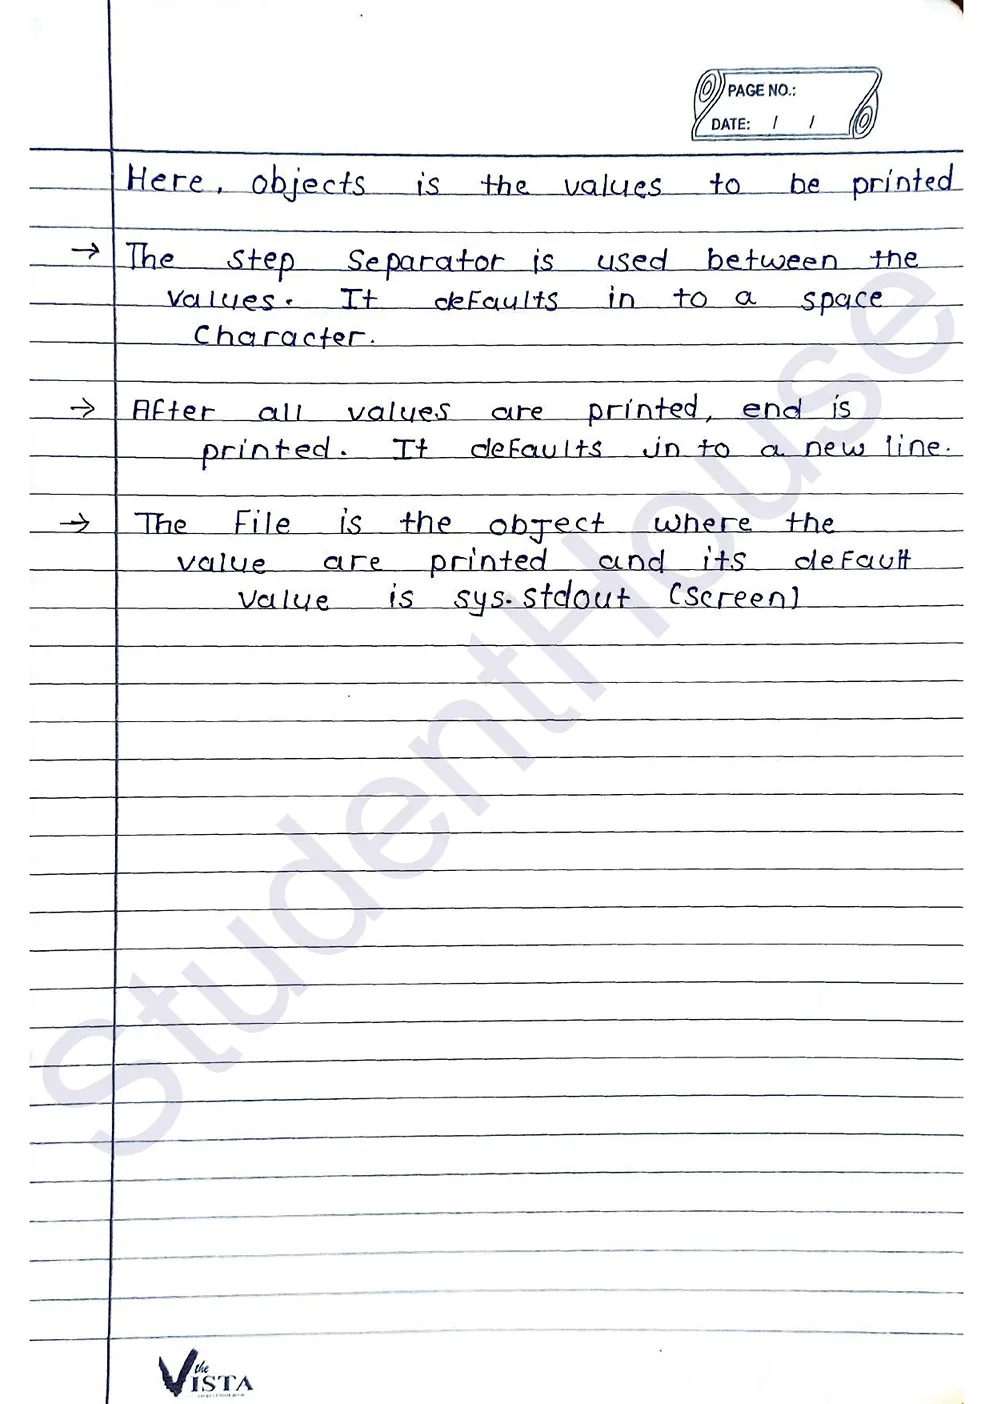 PAGE NO.:
DATE: / /
Here, objects is the values to be printed
→ The step separator is used between the
values. It defaults in to a space
character.
→ After all values are printed, end is
printed. It defaults in to a new line.
→ The File is the object where the
value are printed and its default
value is sys.stdout (screen)
StudentHouse
the VISTA